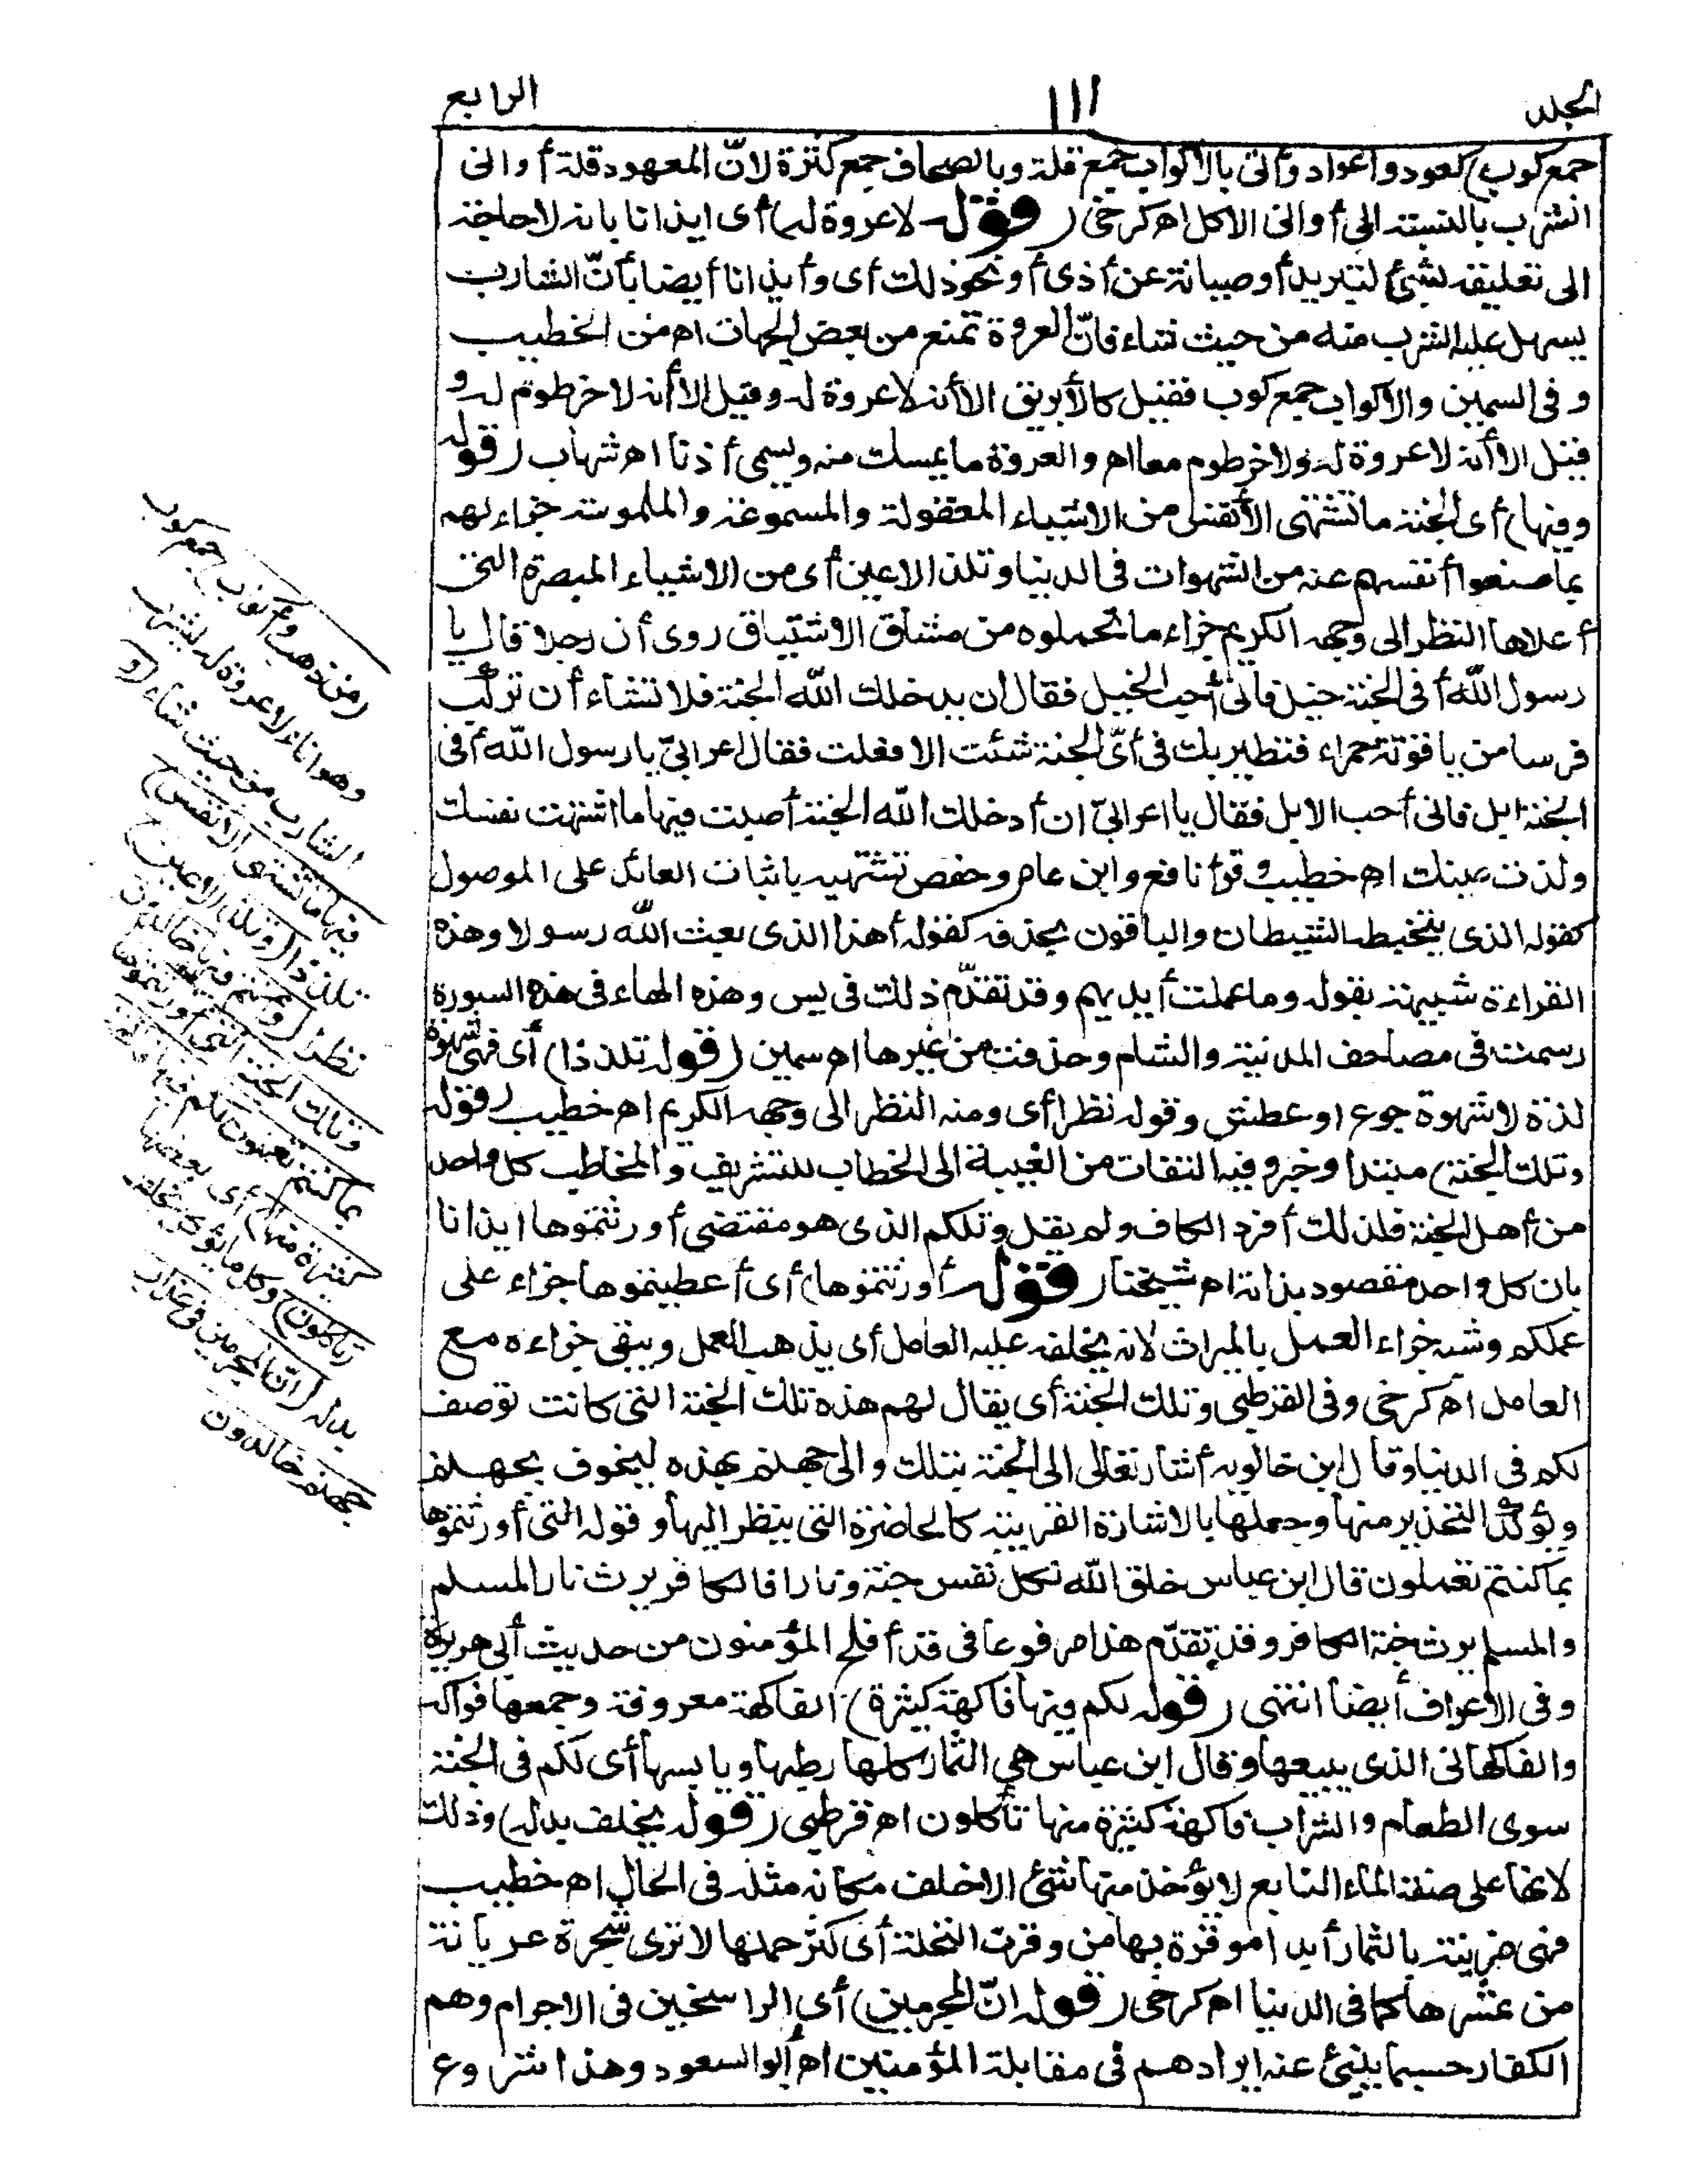 المجلد
١١١
الرابع
جمع كوب) كعود وأعواد وأتى بالأكواب جمع قلة وبالصحاف جمع كثرة لانّ المعهود قلة أوانى
الشرب بالنسبة الى أوانى الاكل اه كرخى (قوله لاعروة له) أى ايذانا بانه لاحاجة
الى تعليقه لشئ لتبريد أوصيانة عن أذى أونحوذلك أى وأيذانا أيضا بأنّ الشارب
يسهل عليه الشرب منه من حيث شاء فانّ العروة تمنع من بعض الجهات اه من الخطيب
وفى السمين والأكواب جمع كوب فقيل كالأبريق الاأنه لاعروة له وقيل الاأنه لاخرطوم له و
قيل الاأنه لاعروة له ولاخرطوم معا اه والعروة مايمسك منه ويسمى أذنا اه شهاب (قوله
وفيها) أى الجنة ماتشتهى الأنفس من الاشياء المعقولة والمسموعة والملموسة جزاء لهم
بماصنعوا أنفسهم عنه من الشهوات فى الدنيا وتلذ الاعين أى من الاشياء المبصرة التى
أعلاها النظر الى وجهه الكريم جزاء ماتحملوه من مشاق الاشتياق روى أن رجلا قال يا
رسول الله أفى الجنة خيل فانى أحب الخيل فقال ان يدخلك الله الجنة فلا تشاء أن تركب
فرسا من ياقوتة حمراء فتطير بك فى أىّ الجنة شئت الا فعلت فقال اعرابىّ يارسول الله أفى
الجنة ابل فانى أحب الابل فقال يا اعرابىّ ان أدخلك الله الجنة أصبت فيها مااشتهت نفسك
ولذت عينك اه خطيب وقرأ نافع وابن عامر وحفص تشتهيه باثبات العائد على الموصول
كقوله الذى يتخبطه الشيطان والباقون بحذفه كقوله أهذا الذى بعث الله رسولا وهذه
القراءة شبيهة بقوله وماعملت أيديهم وقد تقدّم ذلك فى يس وهذه الهاء فى هذه السورة
رسمت فى مصاحف المدنية والشام وحذفت من غيرها اه سمين (قوله تلذذا) أى فهى شهوة
لذة لاشهوة جوع اوعطش وقوله نظرا أى ومنه النظر الى وجهه الكريم اه خطيب (قوله
وتلك الجنة) مبتدا وخبر وفيه التفات من الغيبة الى الخطاب للتشريف والمخاطب كل واحد
من أهل الجنة فلذلك أفرد الكاف ولم يقل وتلكم الذى هو مقتضى أورثتموها ايذانا
بان كل واحد مقصود بذاته اه شيخنا (قوله أورثتموها) أى أعطيتموها جزاء على
عملكم وشبه جزاء العمل بالميراث لانه يخلفه عليه العامل أى يذهب العمل ويبقى جزاءه مع
العامل اه كرخى وفى القرطبى وتلك الجنة أى يقال لهم هذه تلك الجنة التى كانت توصف
لكم فى الدنيا وقال ابن خالويه أشار تعالى الى الجنة بتلك والى جهنم بهذه ليخوف بجهنم
ويؤكد التحذير منها وجعلها بالاشارة القريبة كالحاضرة التى ينظر اليها وقوله التى أورثتموها
بماكنتم تعملون قال ابن عباس خلق الله لكل نفس جنة ونارا فالكافر يرث نار المسلم
والمسلم يرث جنة الكافر وقد تقدّم هذا مرفوعا فى قد أفلح المؤمنون من حديث أبى هريرة
وفى الأعراف أيضا انتهى (قوله لكم فيها فاكهة كثيرة) الفاكهة معروفة وجمعها فواكه
والفاكهانى الذى يبيعها وقال ابن عباس هى الثمار كلها رطبها ويابسها أى لكم فى الجنة
سوى الطعام والشراب فاكهة كثيرة منها تأكلون اه قرطبى (قوله يخلف بدله) وذلك
لانها على صفة الماء النابع لايؤخذ منها شئ الاخلف مكانه مثله فى الحال اه خطيب
فهى مزينة بالثمار أبدا موقرة بها من وقرت النخلة أى كثر حملها لاترى شجرة عريانة
من عشرها كما فى الدنيا اه كرخى (قوله انّ المجرمين) أى الراسخين فى الاجرام وهم
الكفار حسبما ينبئ عنه ايرادهم فى مقابلة المؤمنين اه أبوالسعود وهذا شروع
(من ذهب وأكواب) جمع كوب
وهواناء لاعروة له ليشرب
الشارب من حيث شاء (و
فيها ماتشتهى الانفس)
تلذذا (وتلذ الاعين)
نظرا (وأنتم فيها خالدون
وتلك الجنة التى أورثتموها
بماكنتم تعملون لكم فيها فاكهة
كثيرة منها) أى بعضها
(تأكلون) وكل مايؤكل يخلف
بدله (انّ المجرمين فى عذاب
جهنم خالدون